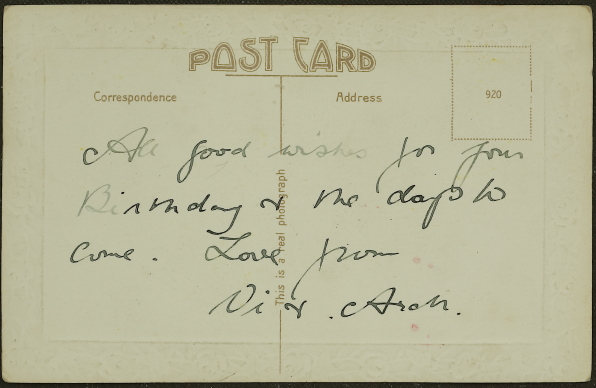 POST CARD
Correspondence
Address
920
All good wishes for your
Birthday & the days to
come. Love from
Vi & Arch.
This is a real photograph